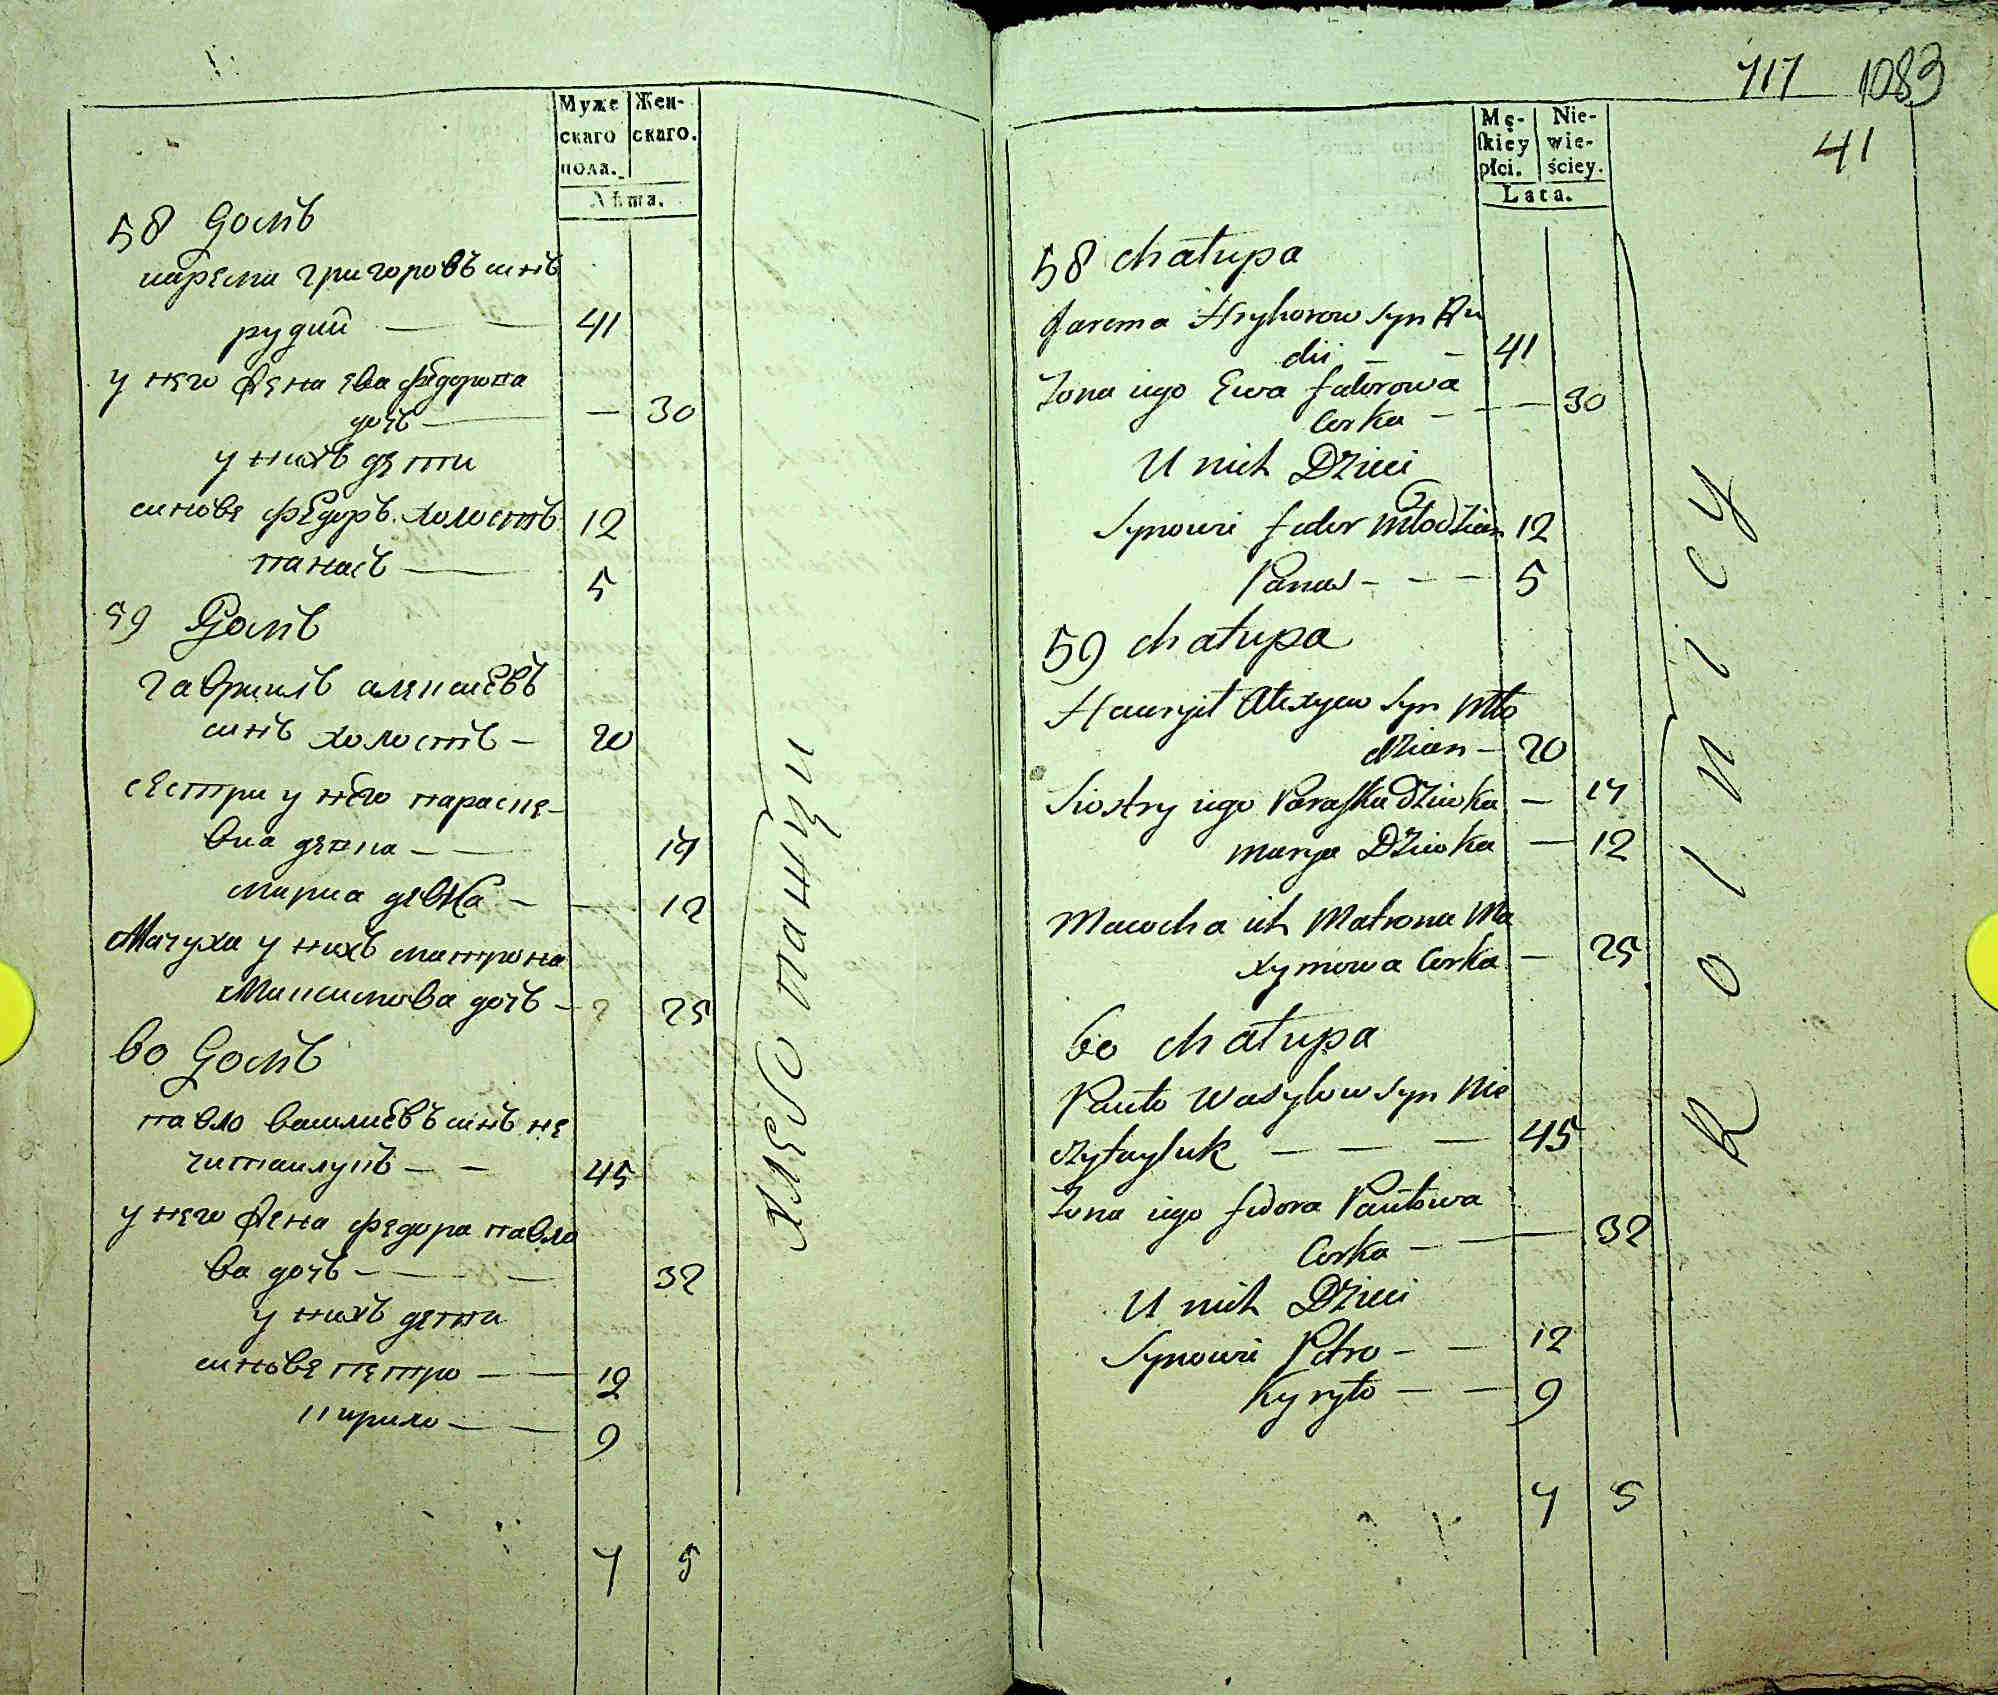 Муже
скаго
пола.
Жен-
скаго.
Лѣта.
58 домъ
ярема григоровъ синъ
рудий — — 41
у него жена ева федорова
дочь — — 30
у нихъ дети
синовя федоръ холостъ 12
панасъ — 5
59 домъ
гаврилъ алексиевъ
синъ холостъ — 20
сестри у него параске-
виа девка — — 17
мариа девка — — 12
Мачуха у нихъ матрона
Максимова дочь — 25
60 домъ
павло василиевъ синъ не
читайлукъ — — 45
у него жена федора павло
ва дочь — — — 32
у нихъ дети
синовя петро — — 12
кирило — — 9
7 5
хлебопашци
717 1083
41
Mę-
ſkiey
płci.
Nie-
wie-
ściey.
Lata.
58 chałupa
Jarema Hryhorow syn Ru
dii — — 41
Żona iego Ewa fedorowa
Corka — — — 30
U nich Dzieci
Synowie fedor Młodzian 12
Panas — — — 5
59 chałupa
Hawryił Alexyew Syn Mło
dzian — 20
Siostry iego Paraſka Dziewka — 17
Marya Dziewka — 12
Macocha ich Matrona Ma
xymowa Corka — 25
60 chałupa
Pawło Wasylow syn Nie
czytayluk — — — 45
Żona iego fedora Pawłowa
Corka — — — 32
U nich Dzieci
Synowie Petro — — 12
Kyryło — — 9
7 5
Rolnicy